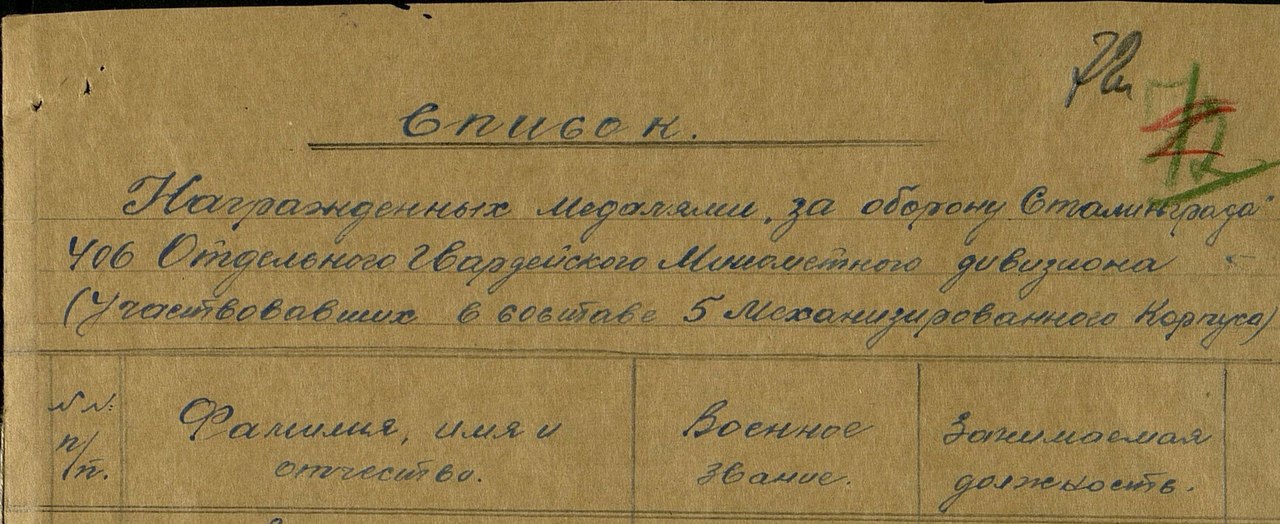 Список.
Награжденных медалями „за оборону Сталинграда"
406 Отдельного Гвардейского Минометного дивизиона
(Участвовавших в составе 5 Механизированного Корпуса)
№№: п/п. Фамилия, имя и отчество. Военное звание. Занимаемая должность.